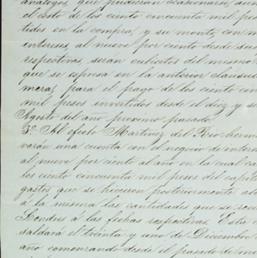 análogos, que pudieran ocasionarse, aun
el costo de los ciento cincuenta mil pes
tidos en la compra, y su monto, con mas
intereses, al nueve por ciento desde sus
respectivas, seran cubiertos del mismo
que se espresa en la anterior clausula
mera, para el pago de los ciento cinc
mil pesos invertidos desde el diez y se
Agosto del año próximo pasado.
3ª Al efecto Martinez del Rio herma
varán una cuenta con el
al nueve por ciento al año en la cual car
los ciento cincuenta mil pesos del capit
gastos que se hicieron posteriormente ab
á la misma las cantidades que se
Londres á las fechas respectivas. Esta
saldará el treinta y uno de Diciembre
año comenzando desde el pasado de